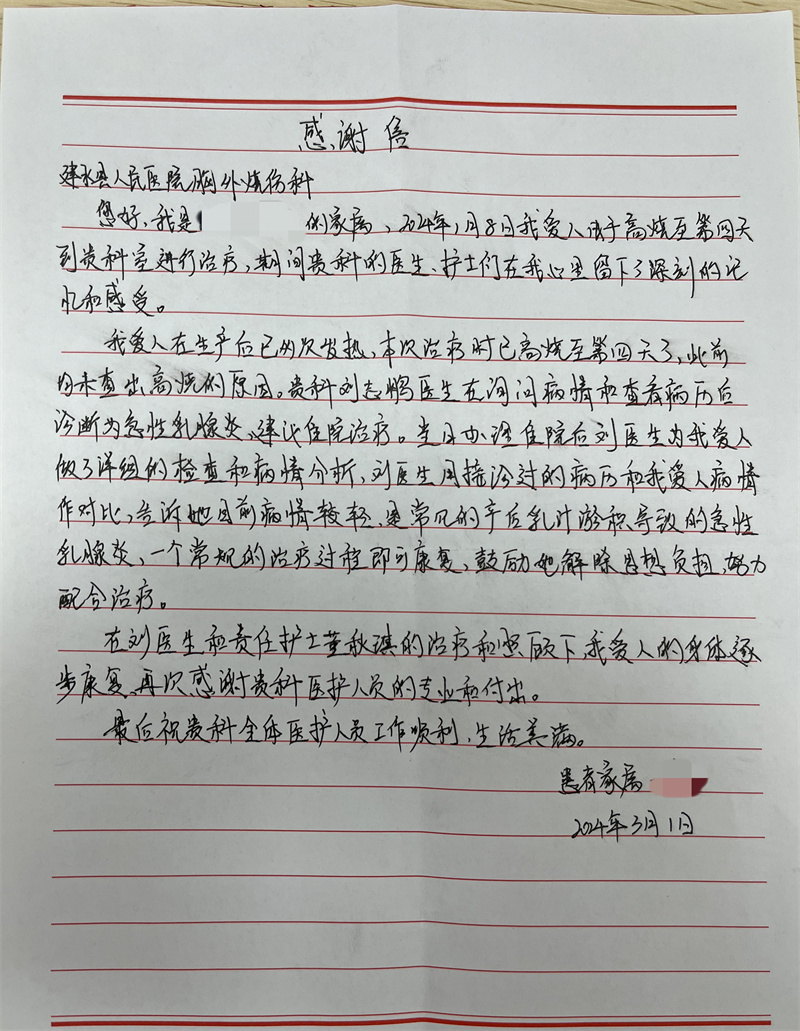 感谢信
建水县人民医院胸外烧伤科
您好，我是 的家属，2024年1月8日我爱人由于高烧至第四天
到贵科室进行治疗，期间贵科的医生、护士们在我心里留下了深刻的记
忆和感受。
我爱人在生产后已两次发热，本次治疗时已高烧至第四天了，此前
均未查出高烧的原因。贵科刘志鹏医生在询问病情和查看病历后
诊断为急性乳腺炎、建议住院治疗。当日办理住院后刘医生为我爱人
做了详细的检查和病情分析，刘医生用接诊过的病历和我爱人病情
作对比，告诉她目前病情较轻，是常见的产后乳汁淤积导致的急性
乳腺炎，一个常规的治疗过程即可康复，鼓励她解除思想负担，努力
配合治疗。
在刘医生和责任护士董秋琪的治疗和照顾下，我爱人的身体逐
步康复，再次感谢贵科医护人员的专业和付出。
最后祝贵科全体医护人员工作顺利、生活美满。
患者家属
2024年3月1日